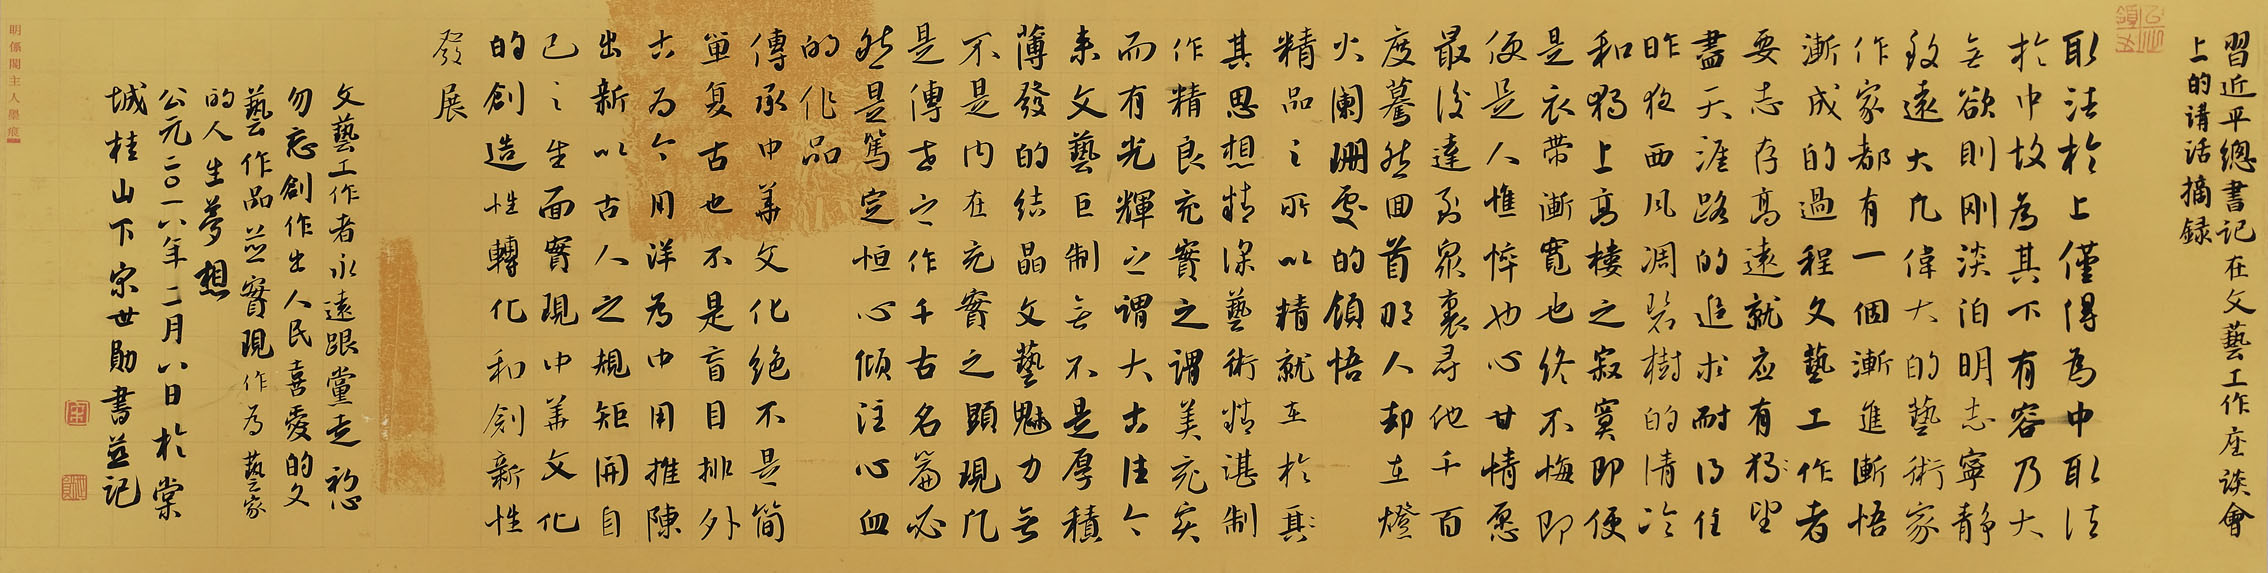 習近平總書記在文藝工作座談會
上的講話摘録
取法於上僅得為中取法
於中故為其下有容乃大
無欲則刚淡泊明志寧静
致遠大凡偉大的藝術家
作家都有一個漸進漸悟
漸成的過程文藝工作者
要志存高遠就应有望
盡天涯路的追求耐得住
昨夜西风凋碧樹的清冷
和獨上高樓之寂寞即便
是衣帶漸寬也终不悔即
便是人憔悴也心甘情愿
最後達到眾裏尋他千百
度驀然回首那人却在燈
火阑珊處的領悟
精品之所以精就在於其
其思想精深藝術精湛制
作精良充實之謂美充实
而有光輝之謂大古往今
来文藝巨制無不是厚積
薄發的结晶文藝魅力無
不是内在充實之顯現凡
是傳世之作千古名篇必
然是篤定恒心倾注心血
的作品
傳承中華文化绝不是简
單复古也不是盲目排外
古為今用洋為中用推陳
出新以古人之規矩開自
己之生面實現中華文化
的創造性轉化和創新性
發展
文藝工作者永遠跟黨走
勿忘創作出人民喜愛的文
藝作品並實現作為藝家
的人生夢想
公元二〇一六年二月八日於棠
城桂山下宗世勋書並記
明係閣主人墨痕